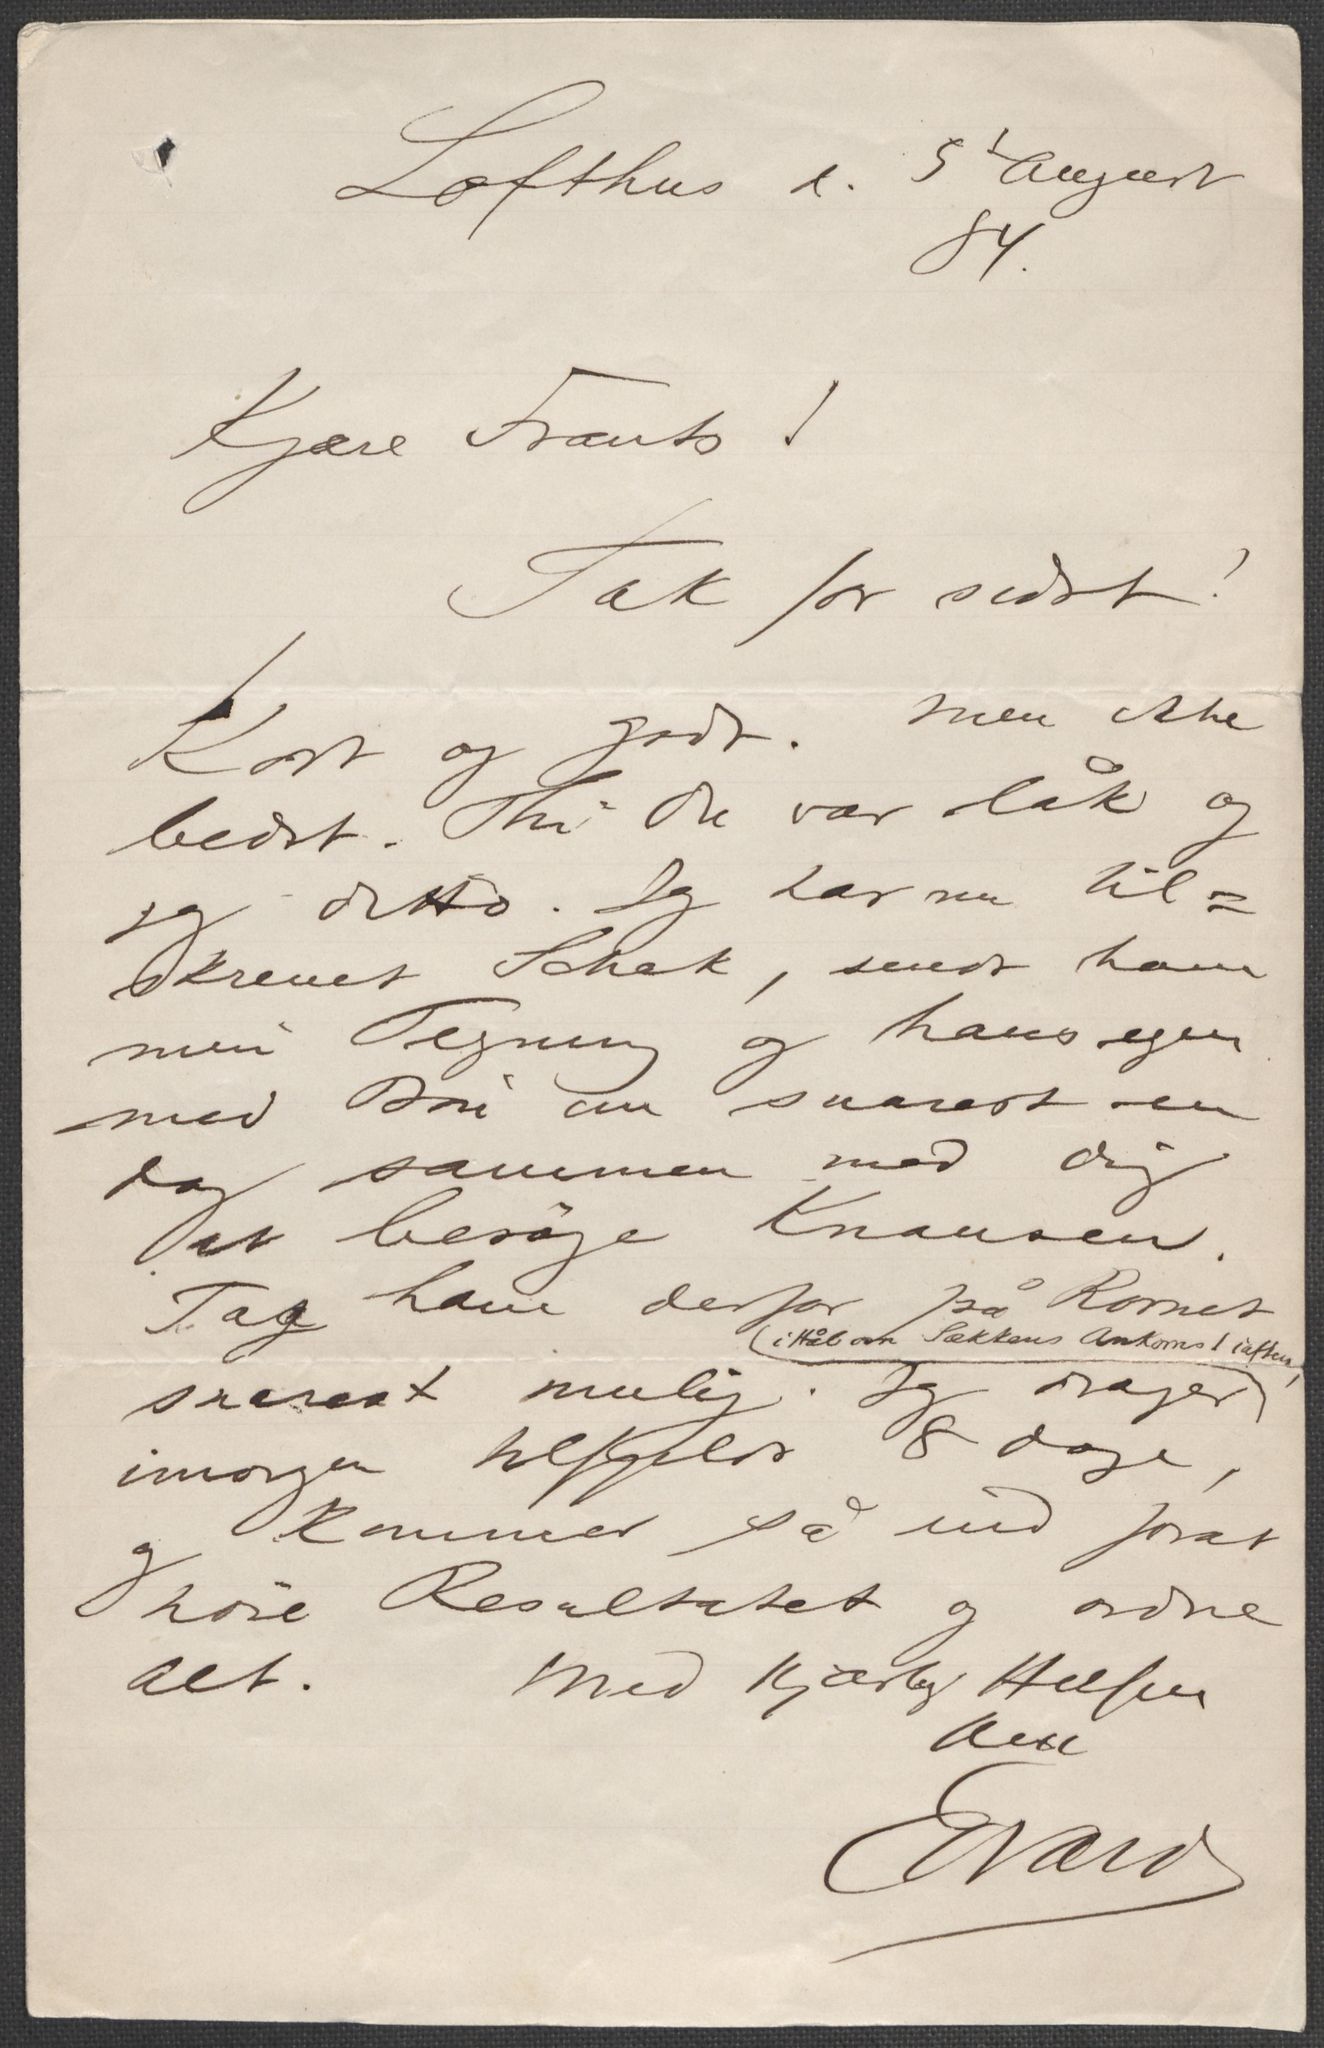 Lofthus d. 5t August
84.
Kjære Frants!
Tak for sidst!
Kort og godt. Men ikke
bedst. Thi Du var låk og
jeg ditto. Jeg har nu til=
skrevet Schak, sendt ham
min Tegning og hans egen
med Bön om snarest en
dag sammen med dig
at besøge Knausen.
Tag ham derfor på Kornet
(i Håb om Sækkens Ankomst iaften,)
snarest mulig. Jeg drager
imorgen tilfjelds 8 dage,
og kommer så ind forat
höre Resultatet og ordne
alt. Med kjærlig Hilsen
Din
Edvard